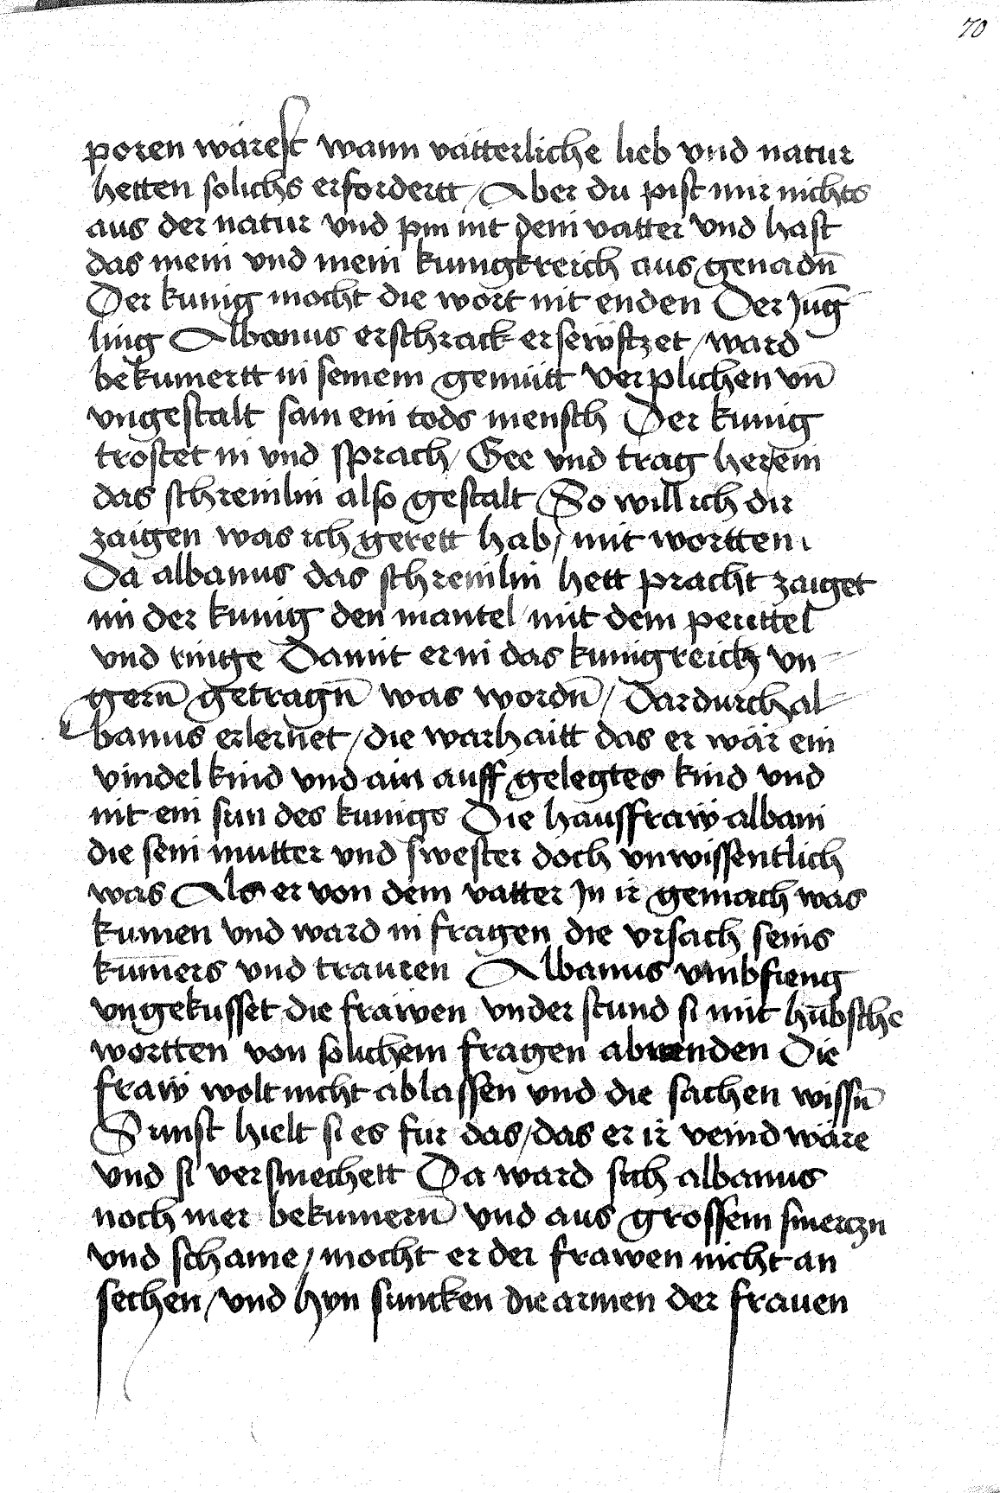 70
poren wärest wann vätterliche lieb vnd natur
hetten solichs erfordertt / Aber du pist mir nichts
aus der natur vnd pin nit dein vatter vnd hast
das mein vnd mein kunigkreich aus genadn̄
Der kunig mocht die wort nit enden Der Junḡ
ling Albanus erschrack ersewfftzet / ward
bekumertt in seinem gemütt verplichen vn̄
vngestalt sam ein tods mensch Der kunig
trostet in vnd sprach / Gee vnd trag herein
das schreinlin also gestalt So will ich dir
zaigen was ich gerett hab / mit wortten
Da albanus das schreinlin hett pracht zaiget
im der kunig den mantel / mit dem peuttel
vnd ringe Damit er in das kunigreich vn
gern̄ getragn̄ was wordn̄ / Dardurch al
banus erlern̄et / die warhaitt das er wär ein
vindel kind vnd ain auff gelegtes kind vnd
nit ein sun des kunigs Die hausfraẅ albani
die sein mutter vnd swester doch vnwissentlich
was Als er von dem vatter in ir gemach was
kumen vnd ward in fragen die vrsach seins
kum̄ers vnd trauren Albanus vmbfieng
vngekusset die frawen vnder stund si mit hüb̄sche
wortten von solichem fragen abwenden Die
fraẅ wolt nicht ablassen vnd die sachen wissn̄
Sunst hielt si es für das / das er ir veind wäre
vnd si versmechett Da ward sich albanus
noch mer bekumern̄ vnd aus grossem smerczn
vnd schame / mocht er der frawen nicht an
sechen / vnd hyn suncken die armen der frauen